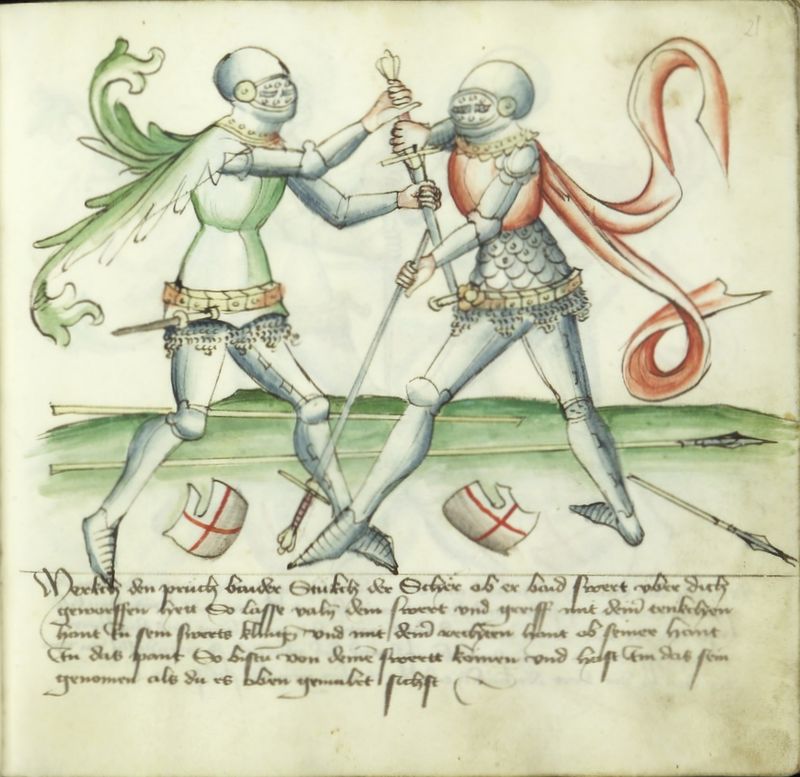 21
Merckh den pruch wider Stukch der Scher ob er baid swert vber dich
geworffen hett So lasse valn dein swert und greiff mit deiner tenkchen
hant In sein swerts kling und mit deiner rechten hant ob seiner hant
In das pant So bistu von deinem swertt komen und hast Im das sein
genomen als du es oben gemalet sichst